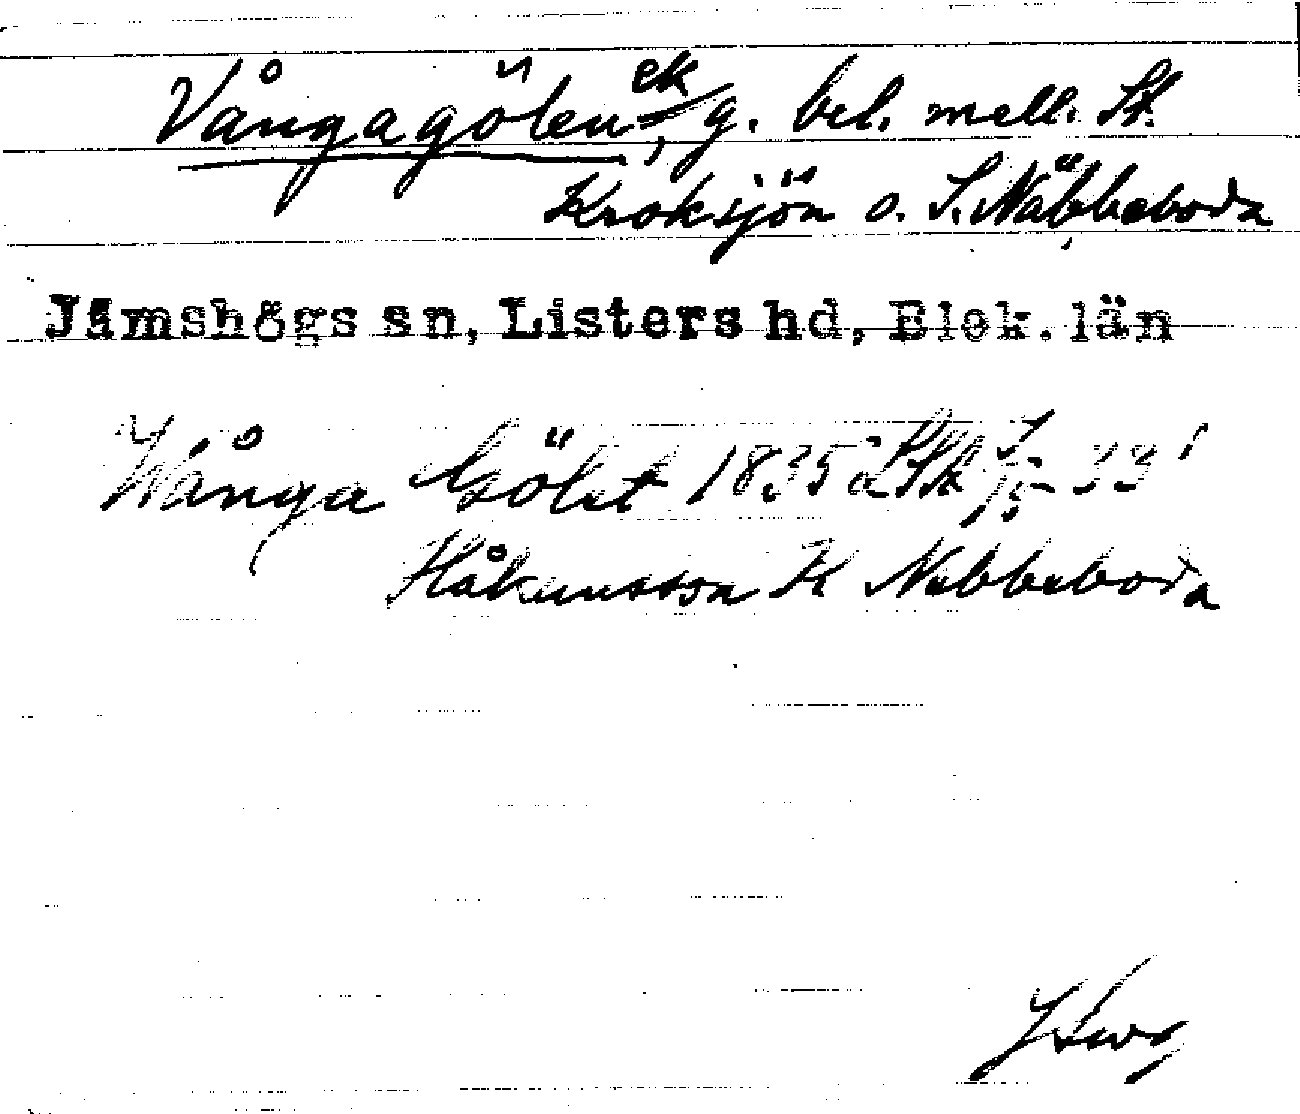 Vångagölen ek, g. bel. mell. St.
Kroksjön o. S. Näbbeboda
Jämshögs sn, Listers hd, Blek. län
Wånga Gölet 1835 å
Håkansson K Nebbeboda